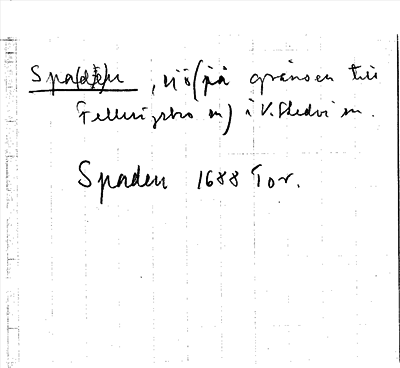 Spa(d)en, sjö (på gränsen till
Fellingsbro sn) i V. Skedvi sn.
Spaden 1688 Tor.